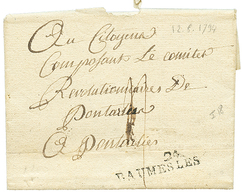 Au Citoyens
Composant Le comitet
Revolutionnaires De
Pontarlier
A Pontarlier
24
BAUMES LES